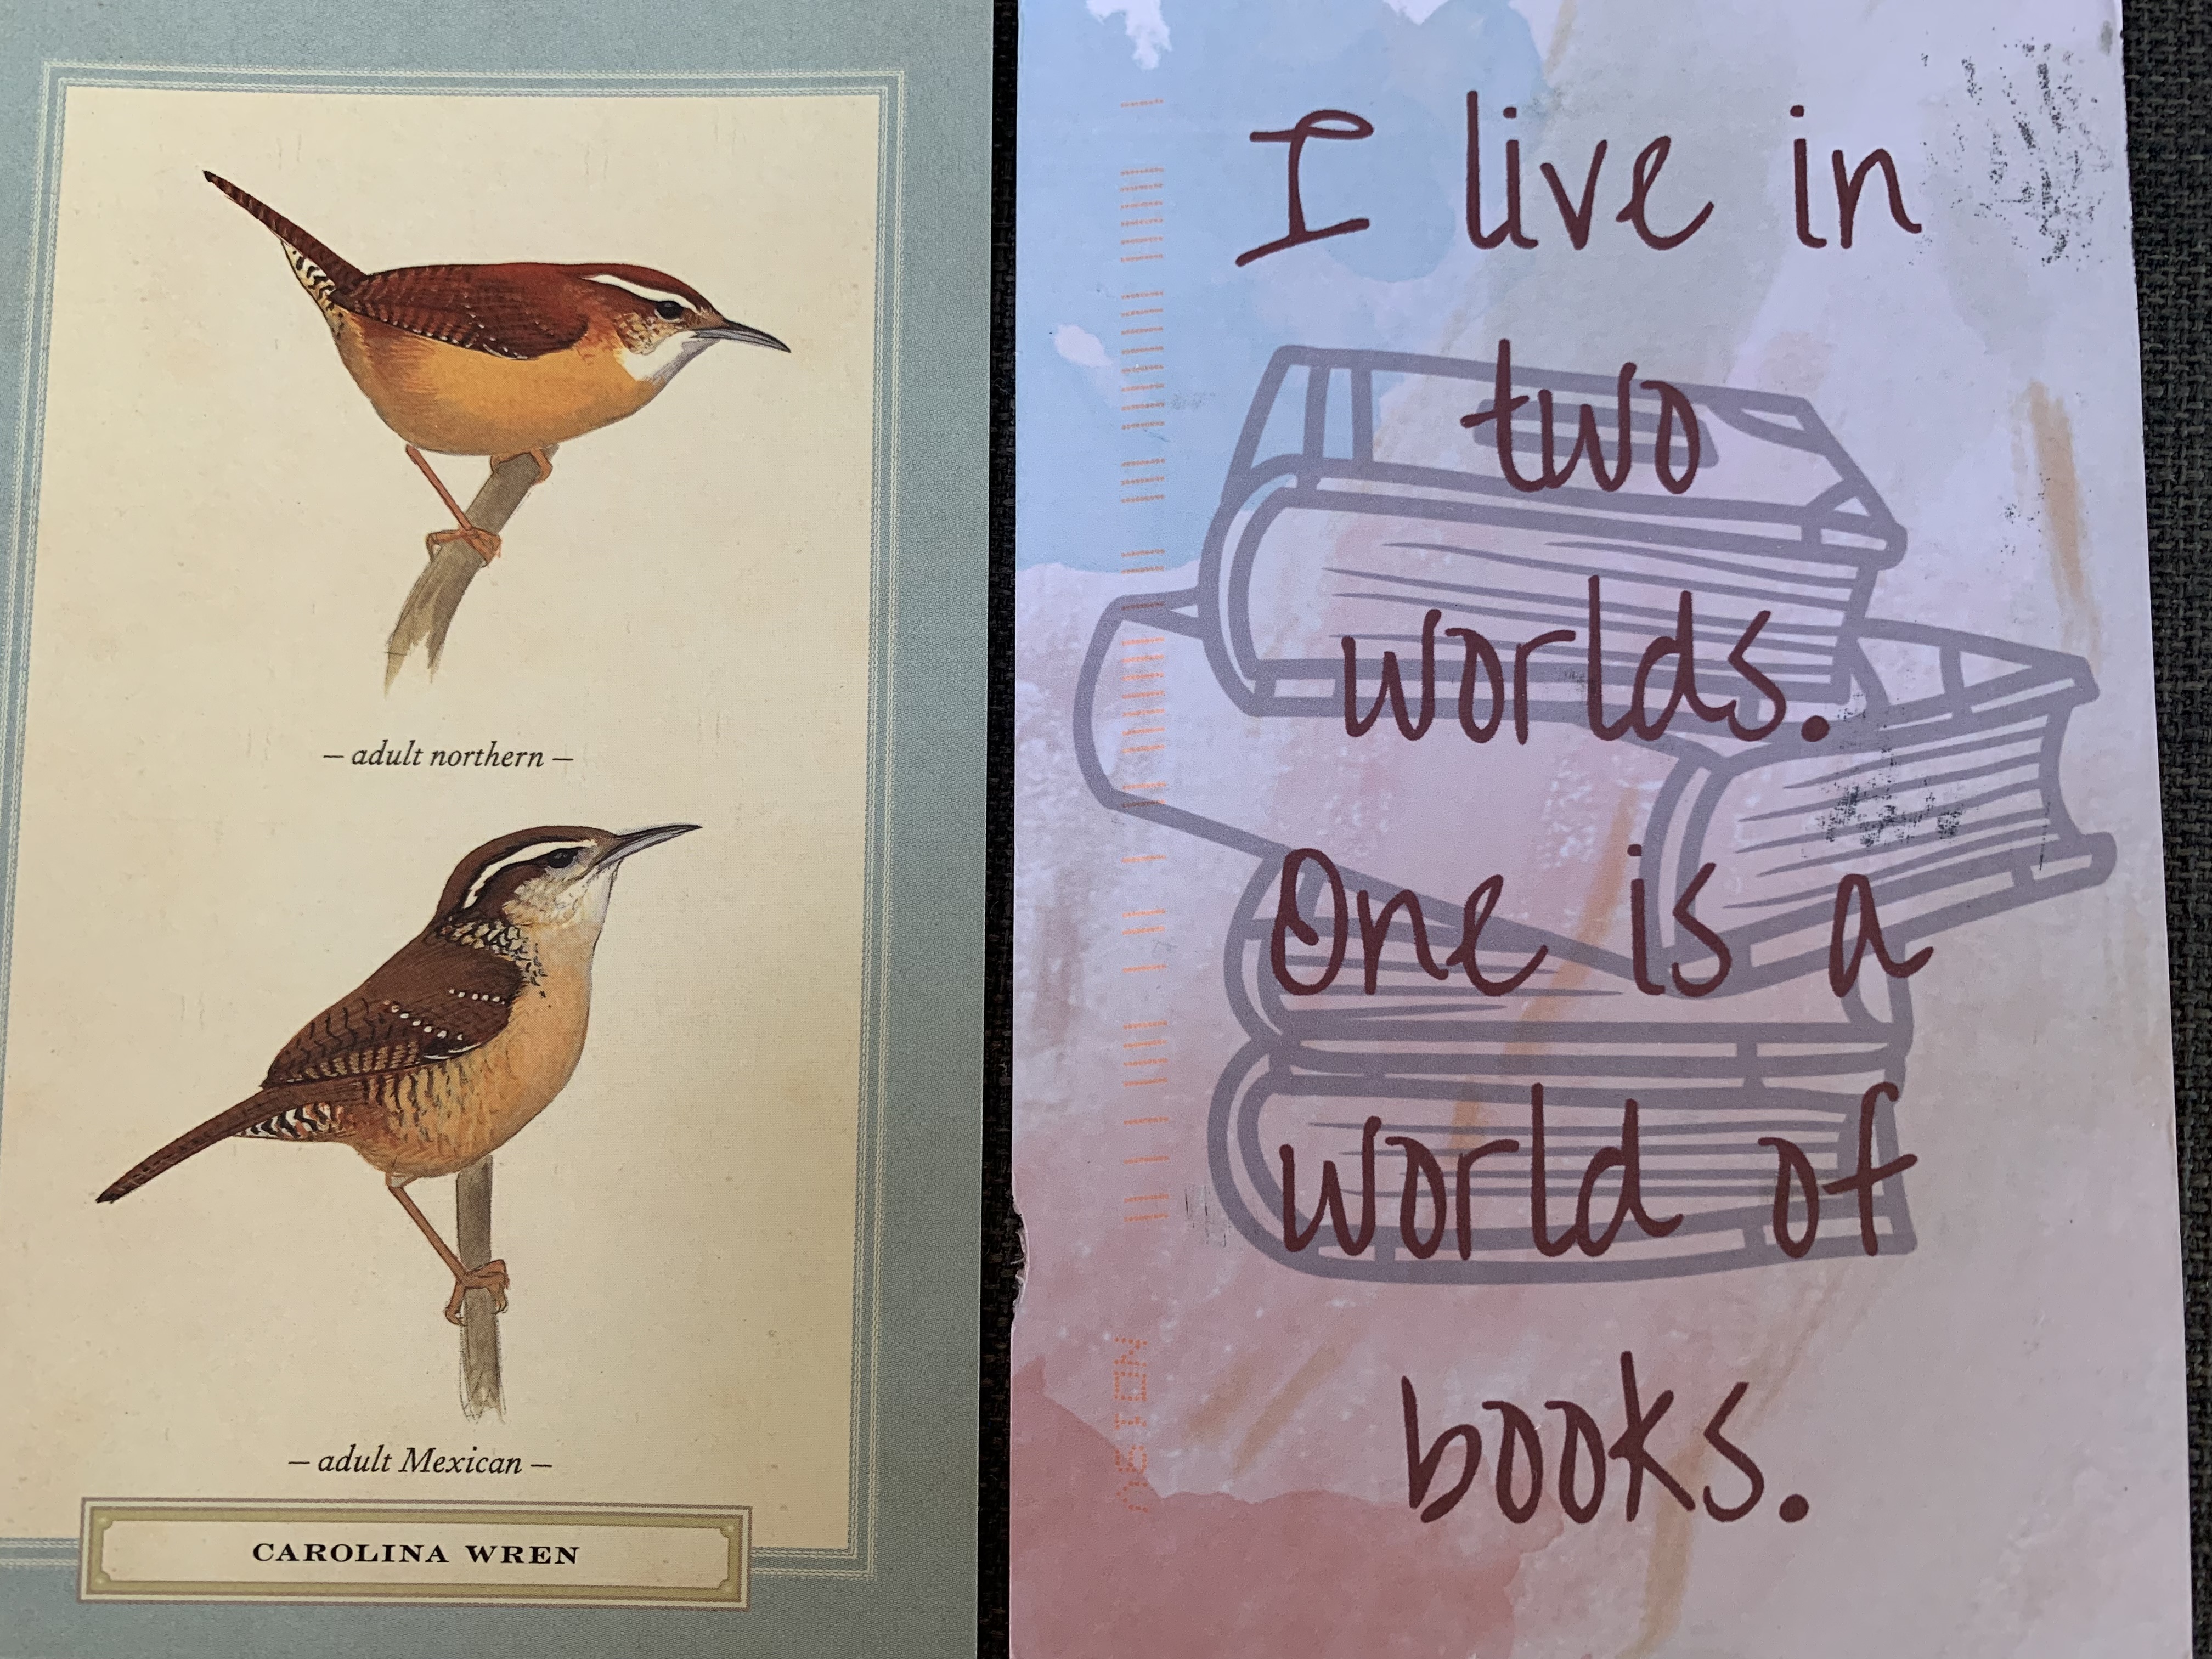 – adult northern –
– adult Mexican –
CAROLINA WREN
I live in
two
worlds.
One is a
world of
books.